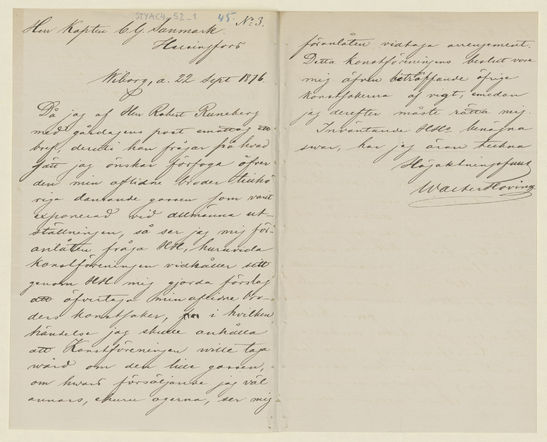 STYAC4_52_1
45.
No 3.
Herr Kapten C G Sanmark.
Helsingfors
Wiborg, d. 22 Sept 1876
Då jag af Herr Robert Runeberg
med gårdagens post emottog
bref, deruti han frågar på hvad
sätt jag önskar förfoga öfver
den min aflidne broder tillhö-
riga dansande gossen som varit
exponerad vid allmänna ut-
ställningen, så ser jag mig för-
anlåten fråga HH, huruvida
Konstföreningen vidhåller sitt
genom HH mig gjorda förslag
att öfvertaga min aflidne bro-
ders konstsaker, i hvilken
händelse jag skulle anhålla
att Konstföreningen wille taga
wård om den lille gossen,
om hwars försäljande jag wäl
annars, ehuru ogerna, ser mig
föranlåten vidtaga arrangement.
Detta konstföreningens beslut vore
mig äfven beträffande öfriga
konstsakerna af vigt, emedan
jag derefter måste rätta mig.
Inväntande HHs benägna
svar, har jag äran teckna
Högaktningsfullt
Walter Hoving